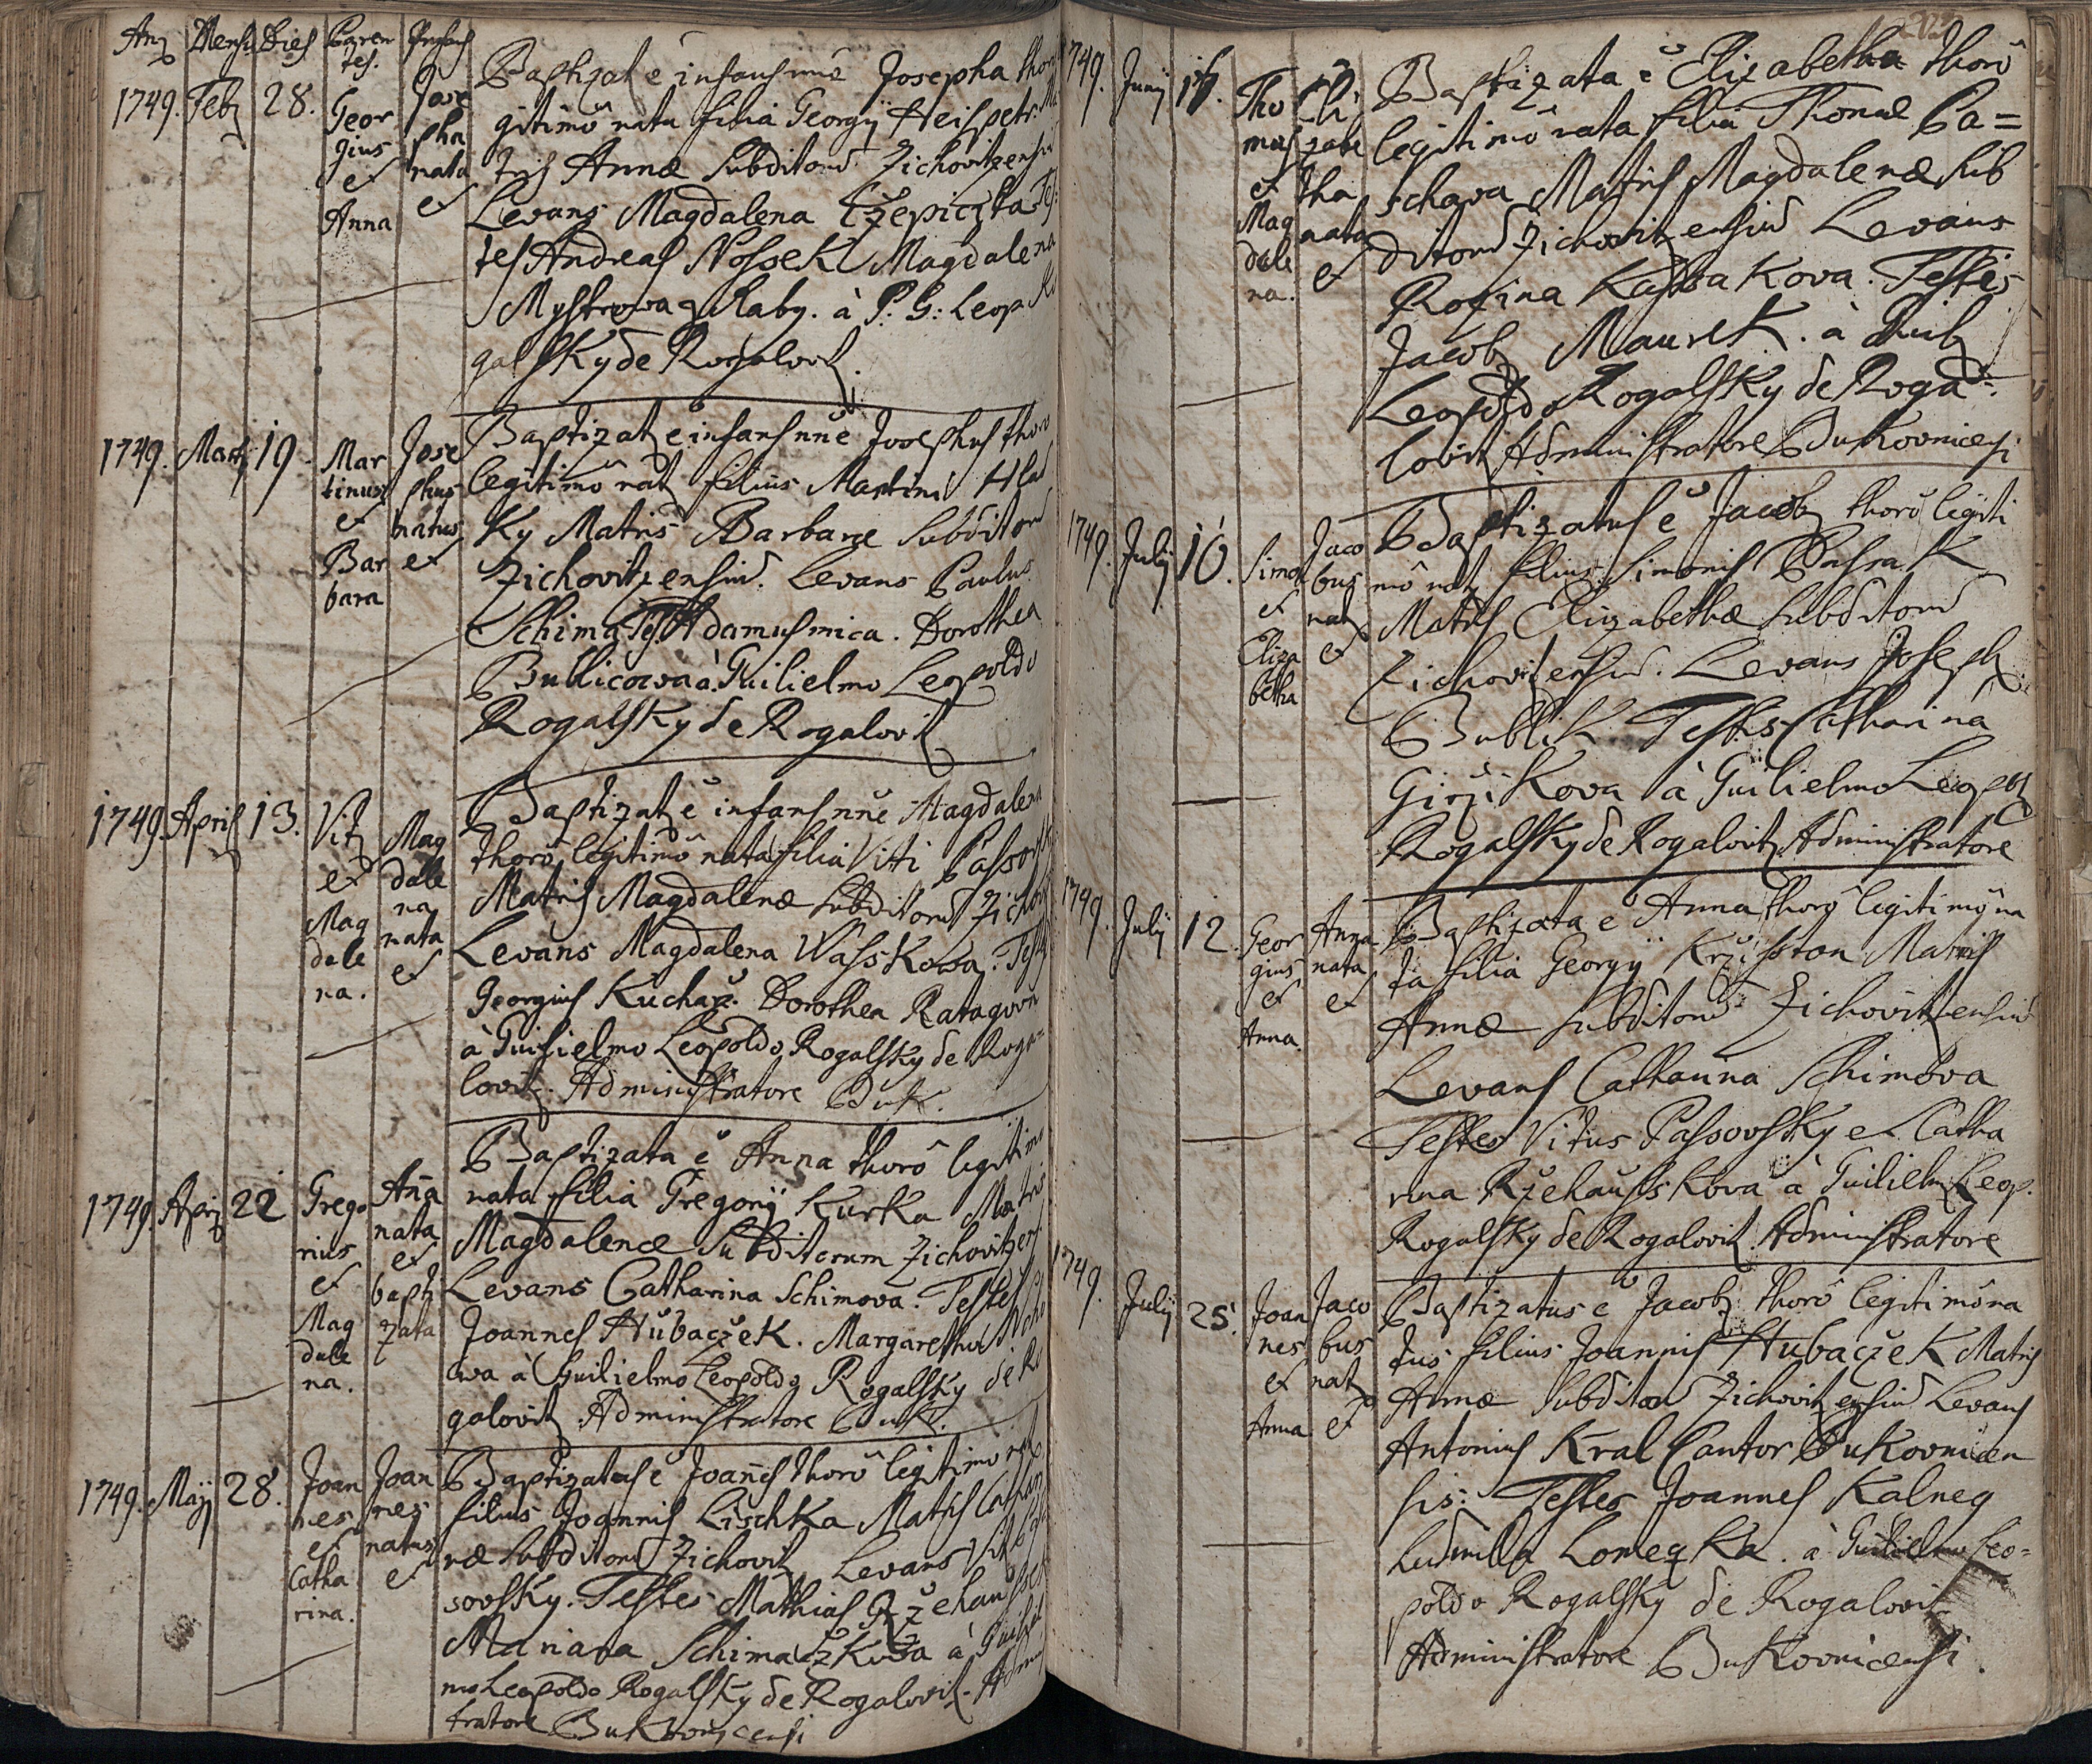 Parentes. Infans
1749. Feb 28.
Georgius et Anna
Josepha nata et
Baptizat e infans nne Josepha thoro
gitimo nata filia Georgij
tris Annae Subditorum Zichovitzensi
Levans Magdalena Czepiczka Tes
tes Andreas Nossek Magdalena
Mystrowa z Raby. à P. G: Leop Ro
galsky de Rogalovitz.
1749. Martij 19
Martinus et Barbara
Josephus natus et
Baptizatz e infans nne Josephus thoro
legitimo natz filius Martini Hlad
ky Matris Barbarae Subditor
Zichovitzensiu. Levans Paulus
Schima Tes. Adamus mica. Dorothea
Bublicowa à Guilielmo Leopoldo
Rogalsky de Rogalovitz
1749 April 13.
Vitz et Magdalena.
Magdalena nata et
Baptizatz e infans nne Magdalena
thoro legitimo nata filia Viti Passovsk
Matris Magdalenae Subditoru Zichov
Levans Magdalena Wasskowa. Testes
Georgius Kucharz. Dorothea
à Guilielmo Leopoldo Rogalsky de Roga=
lovitz. Administratore Buk.
1749. Apri 22
Gregorius et Magdalena.
Anna nata et baptizata
Baptizata e Anna thoro legitimo
nata filia Gregorij Kurka Matris
Magdalenae Subditorum Zichovitzens
Levans Catharina Schimova. Testes
Joannes Hubaczek. Margaretha
owa à Guilielmo Leopoldo Rogalsky de Ro
galovitz Administratore Buk.
1749. Maij 28.
Joannes et Catharina.
Joannes natus et
Baptizatus e Joannes thoro legitimo nat
filius Joannis Lischka Matris Cathari
nae Subditoru Zichovitz Levans Vit Pas
sovsky. Testes Mathias Rzehaussek
Mariana Schimaczkova à Guiliel
mo Leopoldo Rogalsky de Rogalovitz. Adminis
tratore Bukovnicensi
1749. Junij
Thomas et Magdalena.
Elizabetha nata et
Baptizata e Elizabetha thoro
legitimo nata filia Thomae Pa=
schava Matris Magdalenae Sub
ditoru Zichovitzensiu Levans
Rosina Kassakova. Testes
Jacobz Maurek. à Guilz
Leopoldo Rogalsky de Roga=
lovitz Administratore Bukovnicensi
1749. Julij 10.
Simon et Elizabetha
Jacobus natz et
Baptizatus e Jacobz thoro legiti
mo natz filius Simonis Passak
Matris Elizabethae Subditoru
Zichovitzensiu. Levans Josephz
Bublik. Testes Catharina
Girzikova à Guilielmo Leopoz
Rogalsky de Rogalovitz Administratore
1749. Julij 12.
Georgius et Anna.
Anna nata et
Baptizata e Anna thoro legitimo na
ta filia Georgij Krzisstan Matris
Annae Subditoru Zichovitzensiu
Levans Catharina Schimova
Testes Vitus Passovsky et Catha
rina Rzehausskova à Guilielm Leop.
Rogalsky de Rogalovitz Administratore
1749. Julij 25.
Joannes et Anna
Jacobus natz et
Baptizatus e Jacobz thoro legitimo na
tus filius Joannis Hubaczek Matris
Annae Subditoru Zichovitzensiu Levans
Antonius Kral Cantor Bukovnicen
sis: Testes Joannes Kalneg
Ludmilla Lomeqka. à Guilielmo Leo=
poldo Rogalsky de Rogalovitz
Administratore Bukovnicensi.